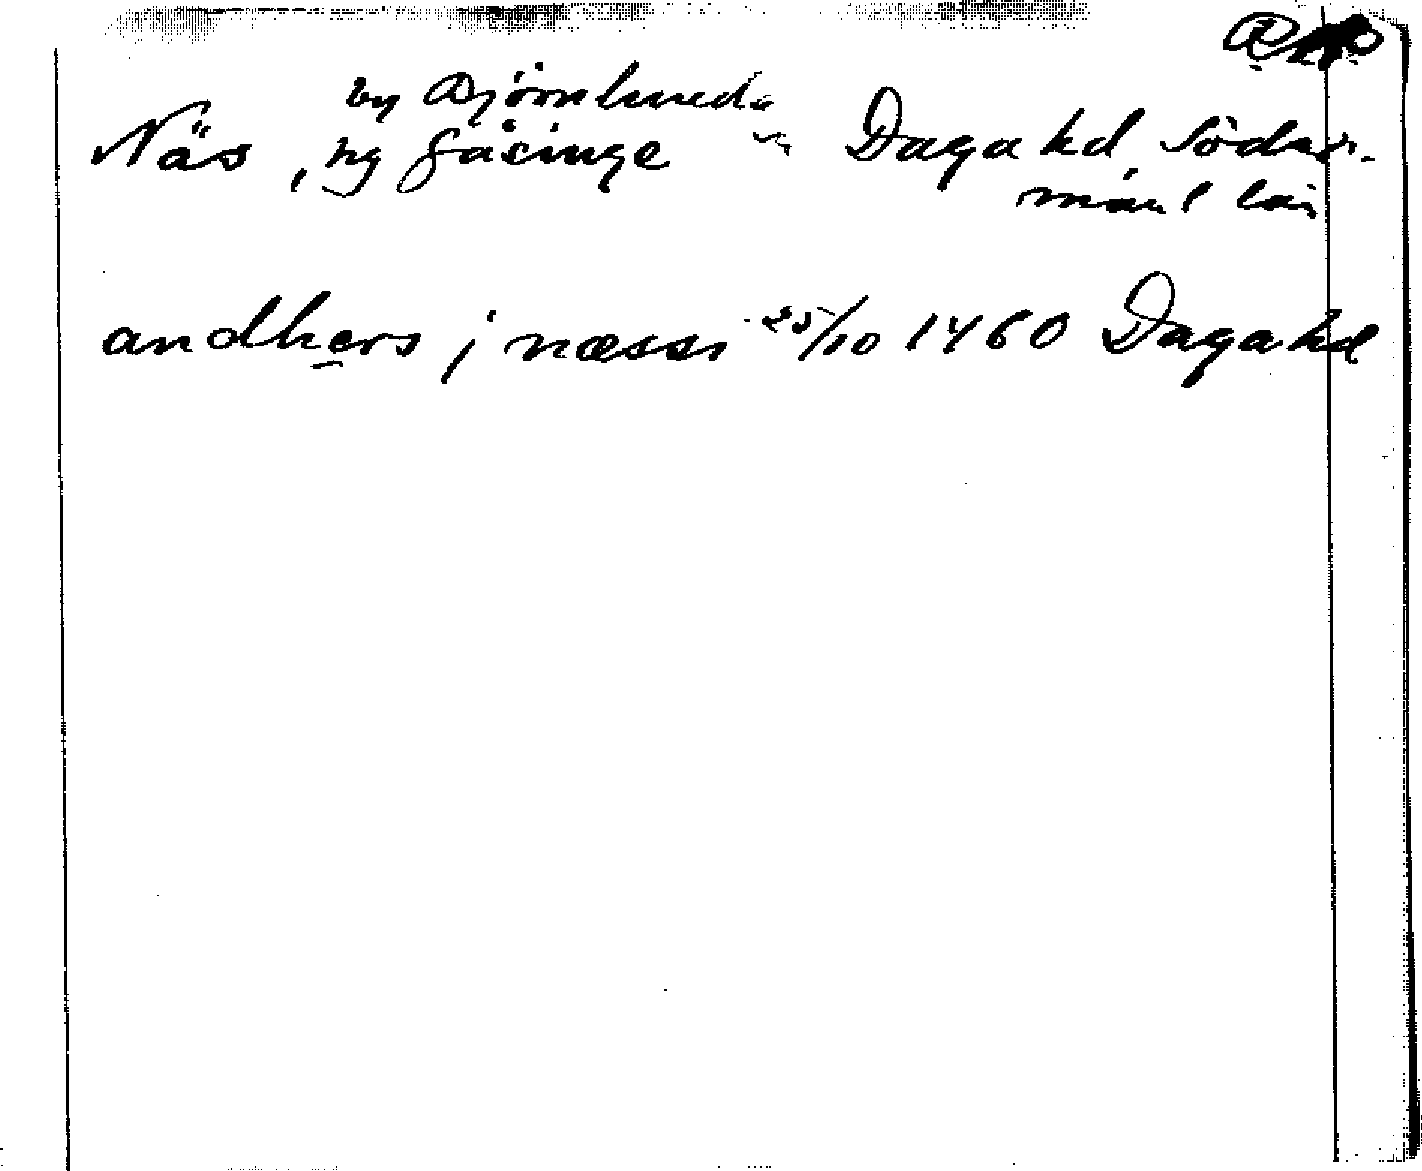 by Björnlunda
Näs, ny Gåsinge sn Daga hd, Söder-
manl län
andhers j næssi 25/10 1460 Daga hd